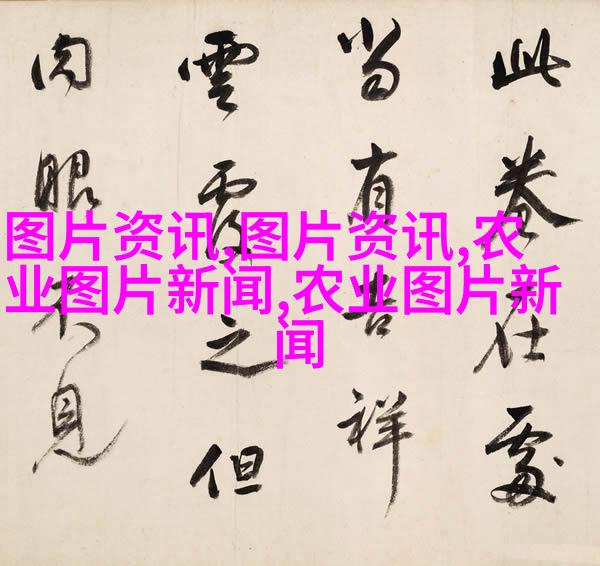 此卷在處
當有吉祥
雲覆之但
肉眼不見
图片资讯,图片资讯,农
业图片新闻,农业图片新
闻